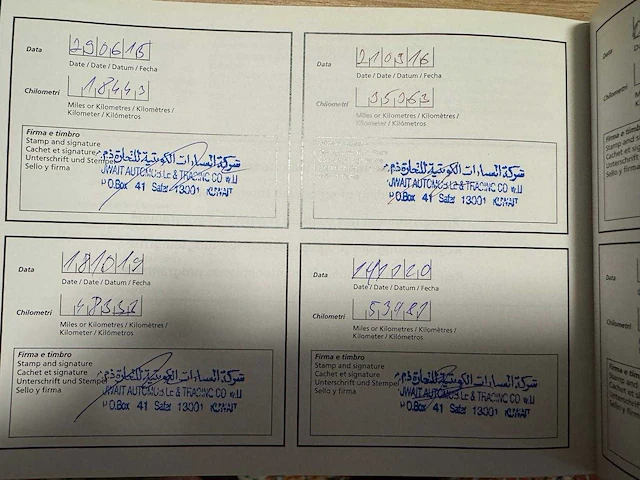 Data 290615
Date / Date / Datum / Fecha
Chilometri 18443
Miles or Kilometres / Kilomètres /
Kilometer / Kilómetros
Firma e timbro
Stamp and signature
Cachet et signature
Unterschrift und Stempel
Sello y firma
شركة السيارات الكويتية للتجارة ذ.م.
UWAIT AUTOMOBILE & TRADING CO W.LL
P O.Box 41 Safat 13001 KUWAIT
Data 210916
Date / Date / Datum / Fecha
Chilometri 35063
Miles or Kilometres / Kilomètres /
Kilometer / Kilómetros
شركة السيارات الكويتية للتجارة ذ.م.
UWAIT AUTOMOBILE & TRADING CO W.LL
P O.Box 41 Safat 13001 KUWAIT
Data 181019
Date / Date / Datum / Fecha
Chilometri 48333
Miles or Kilometres / Kilomètres /
Kilometer / Kilómetros
Firma e timbro
Stamp and signature
Cachet et signature
Unterschrift und Stempel
Sello y firma
شركة السيارات الكويتية للتجارة ذ.م.
UWAIT AUTOMOBILE & TRADING CO W.LL
P O.Box 41 Safat 13001 KUWAIT
Data 141020
Date / Date / Datum / Fecha
Chilometri 53981
Miles or Kilometres / Kilomètres /
Kilometer / Kilómetros
Firma e timbro
Stamp and signature
Cachet et signature
Unterschrift und Stempel
Sello y firma
شركة السيارات الكويتية للتجارة ذ.م.
UWAIT AUTOMOBILE & TRADING CO W.LL
P O.Box 41 Safat 13001 KUWAIT